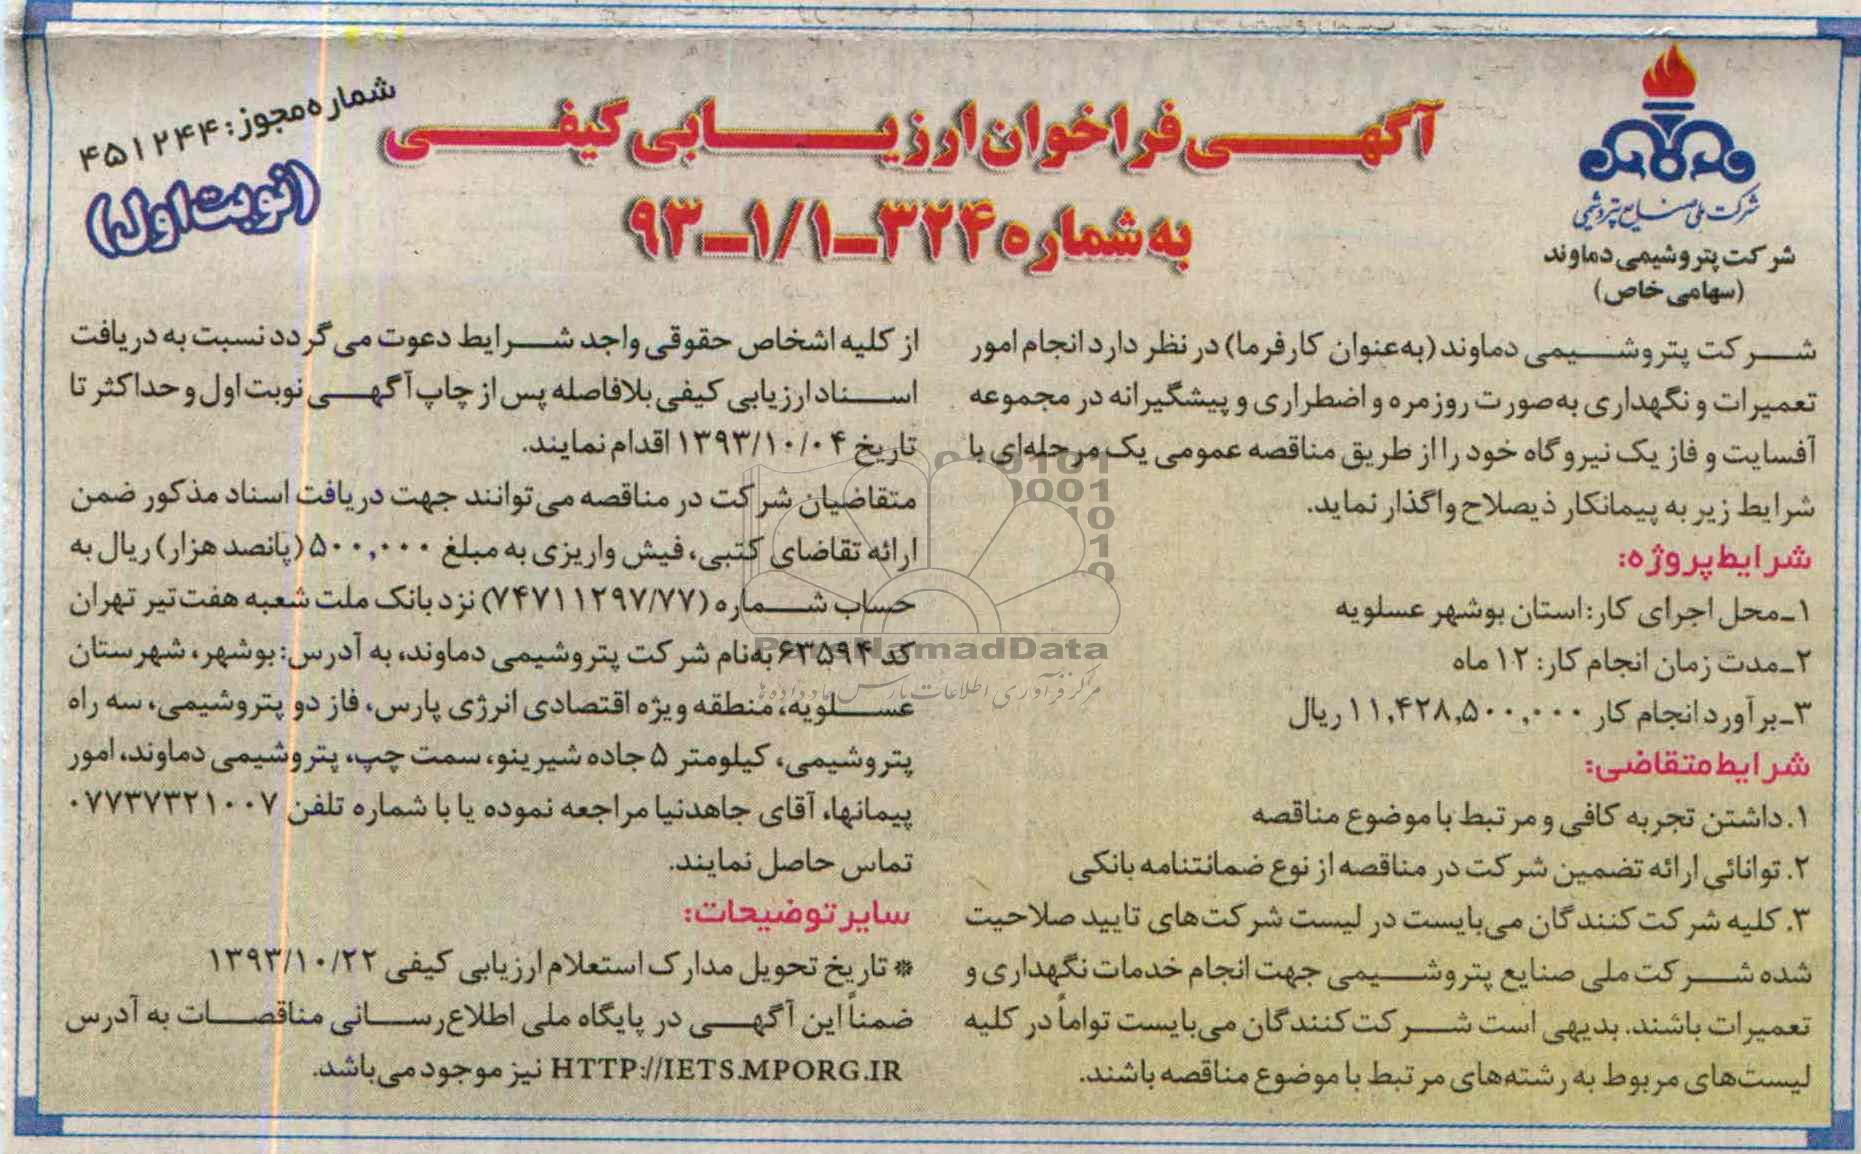 شماره مجوز: ۴۵۱۲۴۴
(نوبت اول)
آگهی فراخوان ارزیابی کیفی
به شماره ۳۲۴-۱/۱-۹۳
شرکت ملی صنایع پتروشیمی
شرکت پتروشیمی دماوند
(سهامی خاص)
شرکت پتروشیمی دماوند (به‌عنوان کارفرما) در نظر دارد انجام امور
تعمیرات و نگهداری به‌صورت روزمره و اضطراری و پیشگیرانه در مجموعه
آفسایت و فاز یک نیروگاه خود را از طریق مناقصه عمومی یک مرحله‌ای با
شرایط زیر به پیمانکار ذیصلاح واگذار نماید.
شرایط پروژه:
۱-محل اجرای کار: استان بوشهر عسلویه
۲-مدت زمان انجام کار: ۱۲ ماه
۳-برآورد انجام کار ۱۱,۴۲۸,۵۰۰,۰۰۰ ریال
شرایط متقاضی:
۱. داشتن تجربه کافی و مرتبط با موضوع مناقصه
۲. توانائی ارائه تضمین شرکت در مناقصه از نوع ضمانتنامه بانکی
۳. کلیه شرکت‌کنندگان می‌بایست در لیست شرکت‌های تایید صلاحیت
شده شرکت ملی صنایع پتروشیمی جهت انجام خدمات نگهداری و
تعمیرات باشند. بدیهی است شرکت‌کنندگان می‌بایست تواماً در کلیه
لیست‌های مربوط به رشته‌های مرتبط با موضوع مناقصه باشند.
از کلیه اشخاص حقوقی واجد شرایط دعوت می‌گردد نسبت به دریافت
اسناد ارزیابی کیفی بلافاصله پس از چاپ آگهی نوبت اول و حداکثر تا
تاریخ ۱۳۹۳/۱۰/۰۴ اقدام نمایند.
متقاضیان شرکت در مناقصه می‌توانند جهت دریافت اسناد مذکور ضمن
ارائه تقاضای کتبی، فیش واریزی به مبلغ ۵۰۰,۰۰۰ (پانصد هزار) ریال به
حساب شماره (۷۴۷۱۱۲۹۷/۷۷) نزد بانک ملت شعبه هفت تیر تهران
کد ۶۳۵۹۴ به‌نام شرکت پتروشیمی دماوند، به آدرس: بوشهر، شهرستان
عسلویه، منطقه ویژه اقتصادی انرژی پارس، فاز دو پتروشیمی، سه راه
پتروشیمی، کیلومتر ۵ جاده شیرینو، سمت چپ، پتروشیمی دماوند، امور
پیمانها، آقای جاهدنیا مراجعه نموده یا با شماره تلفن ۰۷۷۳۷۳۲۱۰۰۷
تماس حاصل نمایند.
سایر توضیحات:
* تاریخ تحویل مدارک استعلام ارزیابی کیفی ۱۳۹۳/۱۰/۲۲
ضمناً این آگهی در پایگاه ملی اطلاع‌رسانی مناقصات به آدرس
HTTP://IETS.MPORG.IR نیز موجود می‌باشد.
ParsNamadData